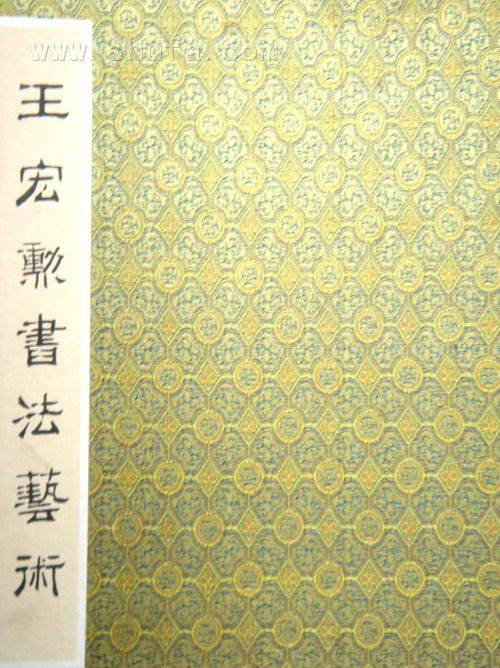 www.shufa.com
王宏勲書法藝術